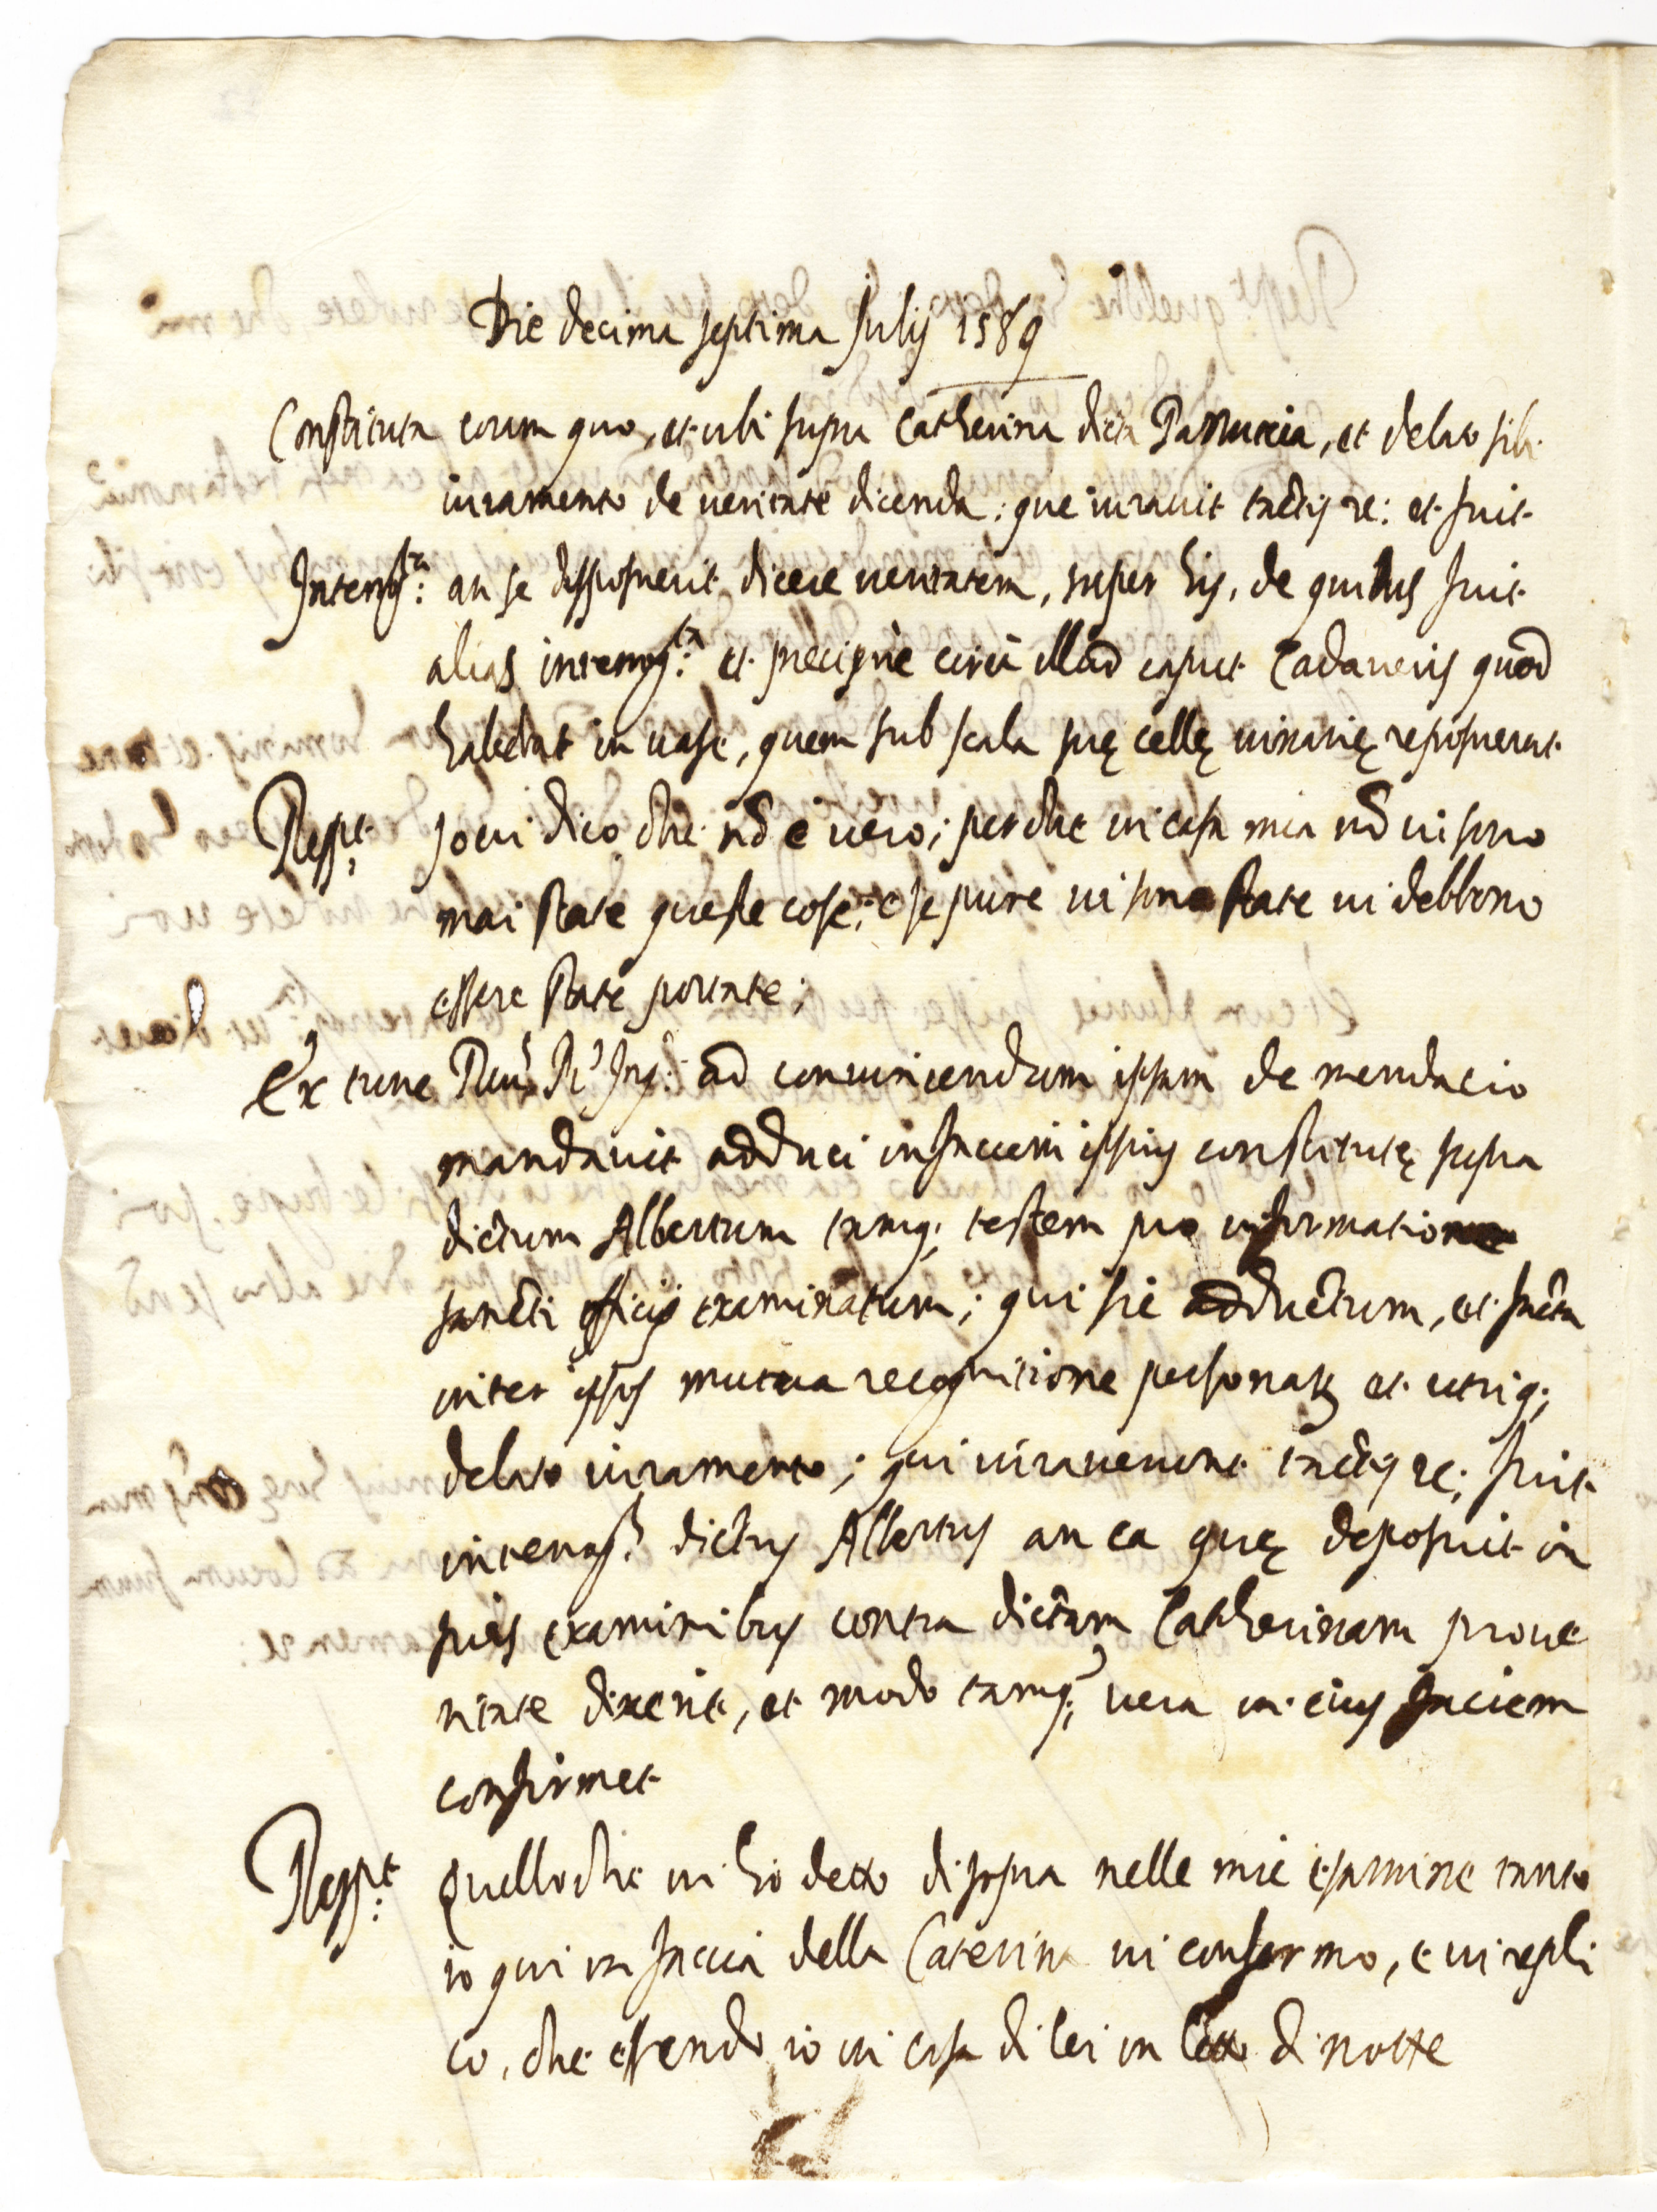 Die decima septima Julij 1589
Constituta coram quo, et ubi supra Catherina dicta Pannuccia, et delato sibi
iuramento de veritate dicenda: que iuravit tactis re: et fuit
Interrog:ta an se disposuerit dicere veritatem, super his, de quibus fuit
alias interrog:ta et precipuè circa illud caput Cadaveris quod
habebat in vase, quem sub scala suę cellę vinarię reposuerat
Resp:t Jo vi dico che nō è vero; perche in casa mia nō vi sono
mai state queste cose: e se pure vi sono state vi debbono
essere state portate;
Ex tunc Rev:s P. Inq:r ad convincendum ipsam de mendacio
mandavit adduci in faciem ipsius constitutę supra
dictum Albertum tamq; testem pro informatione
sancti officij examinatum; qui sic adductum, et facta
inter ipsos mutua recognitione personarum et utriq;
delato iuramento; qui iuraverunt tactis re; fuit
interrog:s dictus Albertus an ea quę deposuit in
suis examinibus contra dictam Catherinam pro ve
ritate dixerit, et modo tamq; vera in eius faciem
confirmet
Resp:t Quello che vi hò detto di sopra nelle mie esamine tutto
io qui in faccia della Caterina vi confermo, e vi repli
co, che essendo io in casa di lei in letto di notte